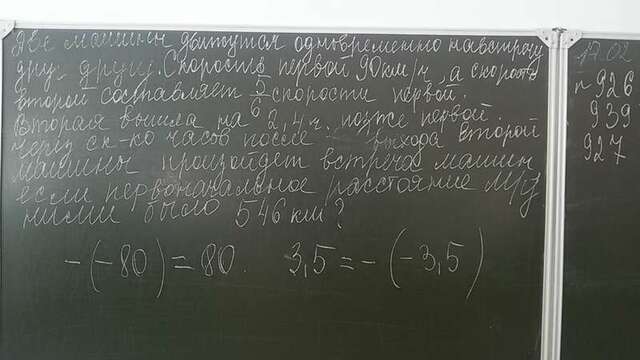 Две машины движутся одновременно навстречу
друг другу. Скорость первой 90км/ч, а скорость
второй составляет 5/6 скорости первой.
Вторая вышла на 2,4 ч. позже первой.
Через ск-ко часов после выхода второй
машины произойдет встреча машин
если первоначальное расстояние м/д
ними было 546 км?
-(-80) = 80. 3,5 = -(-3,5)
17.02
n 926
939
927